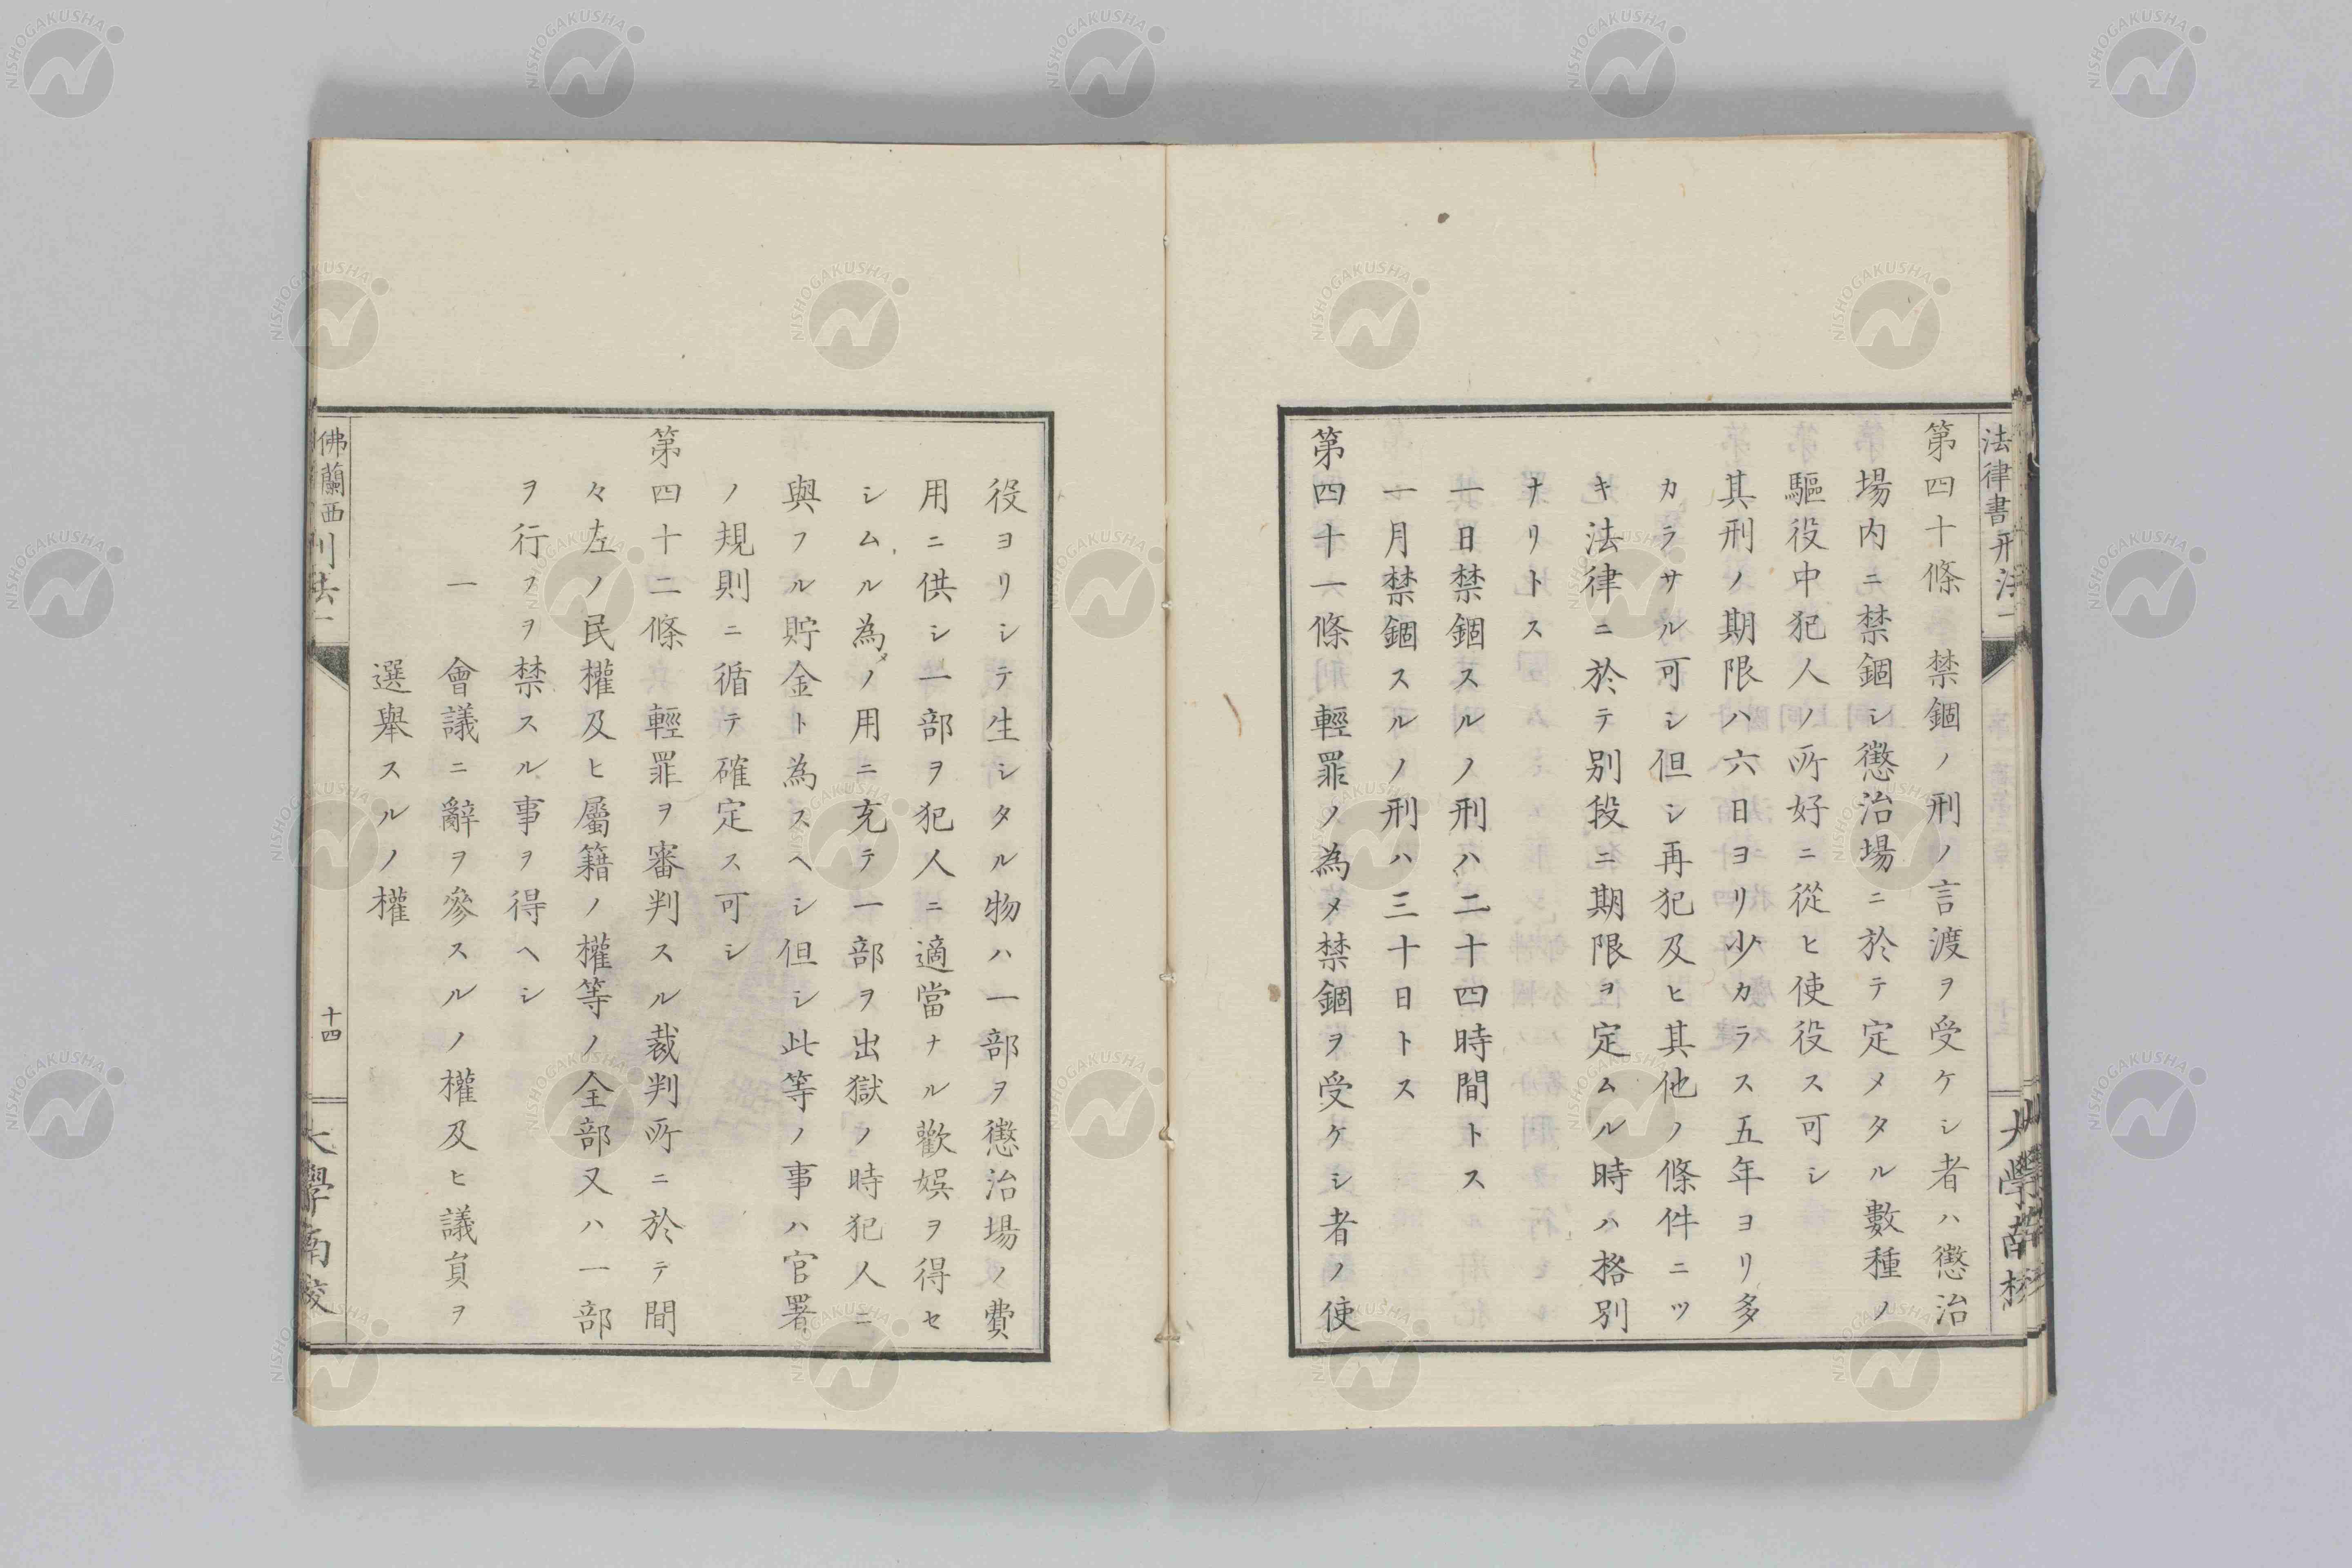 法律書刑法一
第四十條 禁錮ノ刑ノ言渡ヲ受ケシ者ハ懲治
場内ニ禁錮シ懲治場ニ於テ定メタル數種ノ
驅役中犯人ノ所好ニ從ヒ使役ス可シ
其刑ノ期限ハ六日ヨリ少カラス五年ヨリ多
カラサル可シ但シ再犯及ヒ其他ノ條件ニツ
キ法律ニ於テ別段ニ期限ヲ定ムル時ハ格別
ナリトス
一日禁錮スルノ刑ハ二十四時間トス
一月禁錮スルノ刑ハ三十日トス
第四十一條 輕罪ノ為メ禁錮ヲ受ケシ者ノ使
役ヨリシテ生シタル物ハ一部ヲ懲治場ノ費
用ニ供シ一部ヲ犯人ニ適當ナル歡娯ヲ得セ
シムル為メノ用ニ充テ一部ヲ出獄ノ時犯人ニ
與フル貯金ト為スヘシ但シ此等ノ事ハ官署
ノ規則ニ循テ確定ス可シ
第四十二條 輕罪ヲ審判スル裁判所ニ於テ間
々左ノ民權及ヒ屬籍ノ權等ノ全部又ハ一部
ヲ行フヲ禁スル事ヲ得ヘシ
一 會議ニ辭ヲ參スルノ權及ヒ議員ヲ
選擧スルノ權
佛蘭西刑法一
十四
大學南校
NISHOGAKUSHA